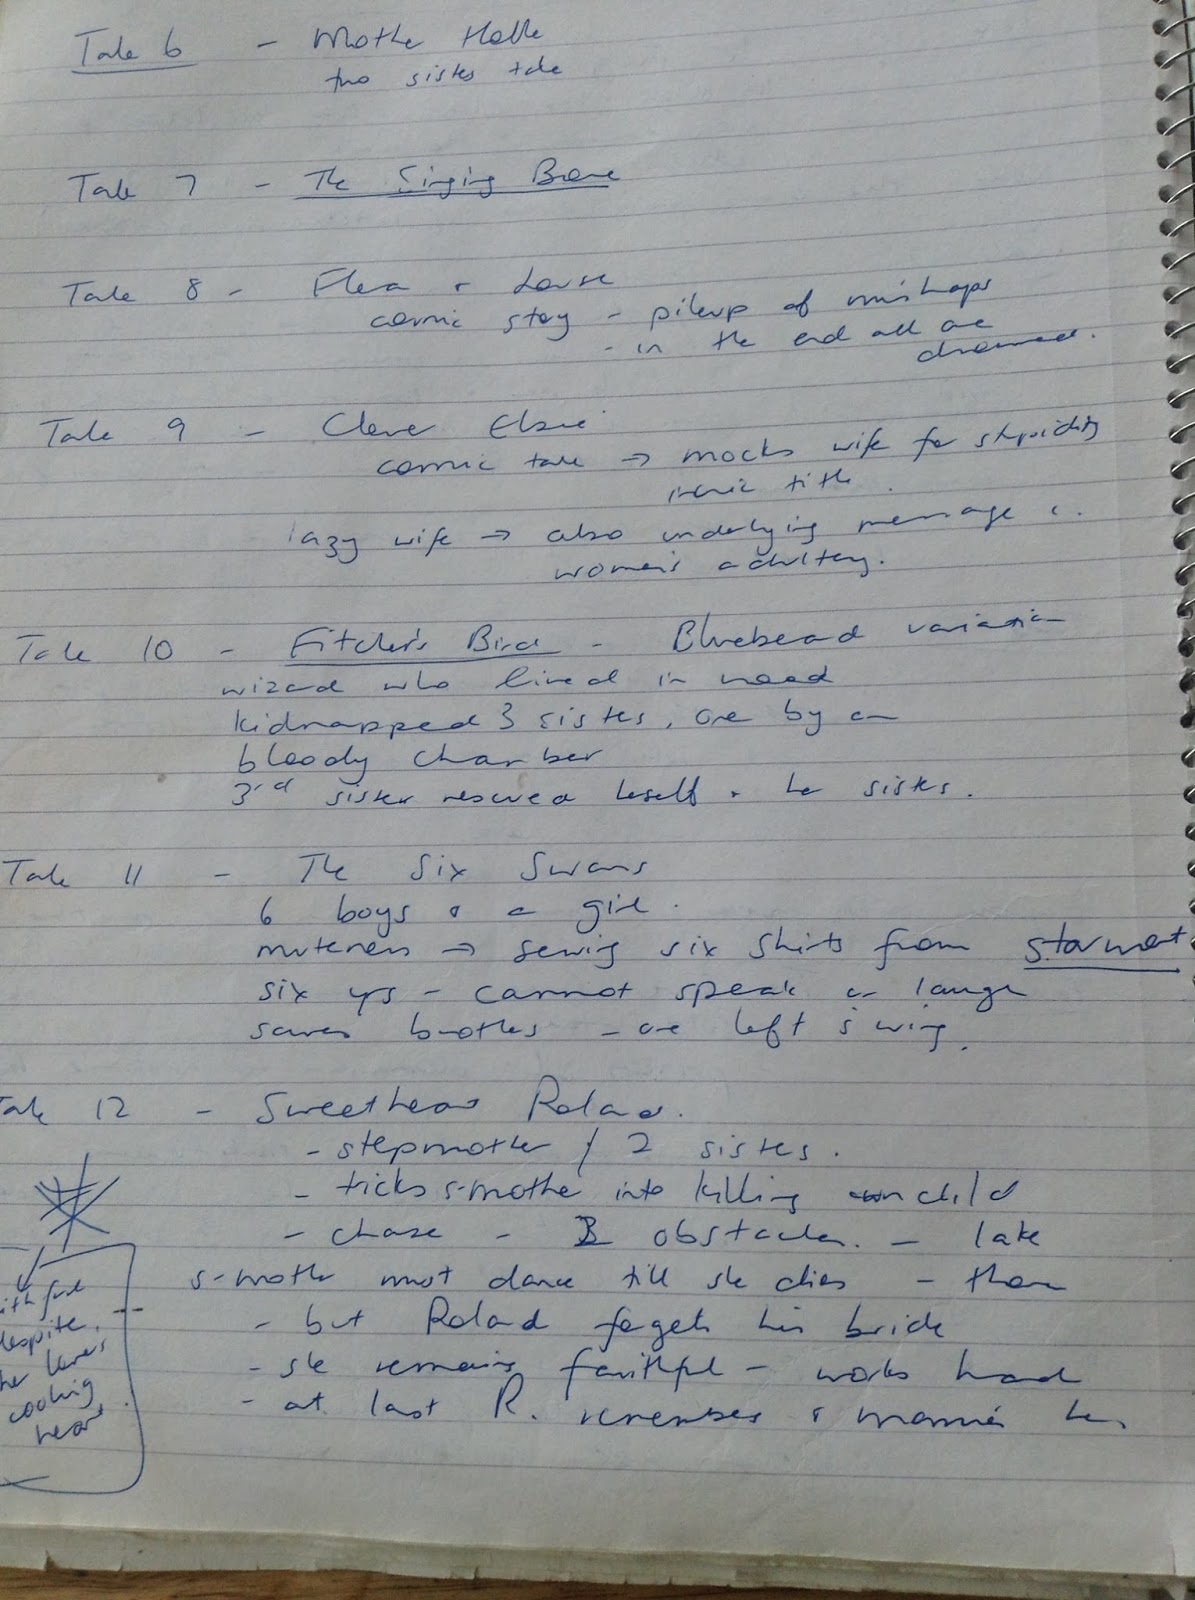 Tale 6 - Mother Holle
two sisters tale
Tale 7 - The Singing Bone
Tale 8 - Flea & Louse
comic story - pileup of mishaps
- in the end all are
drowned.
Tale 9 - Clever Elsie
comic tale → mocks wife for stupidity
ironic title.
lazy wife → also underlying message
women's adultery.
Tale 10 - Fitcher's Bird - Bluebeard variation
wizard who lived in wood
kidnapped 3 sisters, one by one
bloody chamber
3rd sister rescued herself & her sisters.
Tale 11 - The Six Swans
6 boys & a girl.
muteness → sewing six shirts from starwort
six yrs - cannot speak or laugh
saves brothers - one left wing.
Tale 12 - Sweetheart Roland.
- stepmother / 2 sisters.
- tricks s-mother into killing own child
- chase - 3 obstacles. - lake
s-mother must dance till she dies - thorn
- but Roland forgets his bride
- she remains faithful - works hard
- at last R. remembers & marries her
despite
her lover's
cooling
heart.